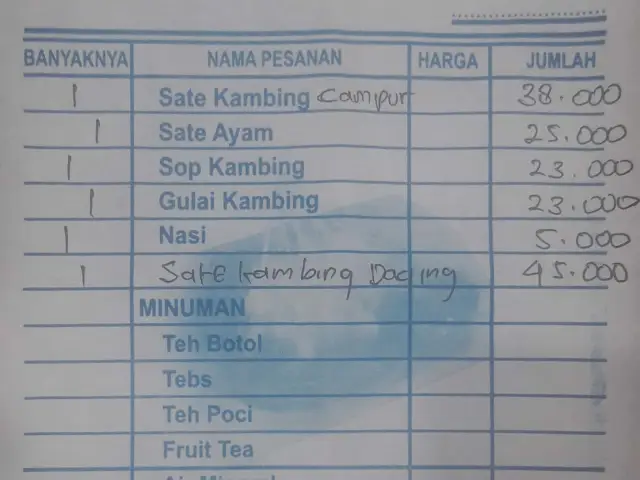 BANYAKNYA NAMA PESANAN HARGA JUMLAH
1 Sate Kambing Campur 38.000
1 Sate Ayam 25.000
1 Sop Kambing 23.000
1 Gulai Kambing 23.000
1 Nasi 5.000
1 Sate Kambing Dading 45.000
MINUMAN
Teh Botol
Tebs
Teh Poci
Fruit Tea